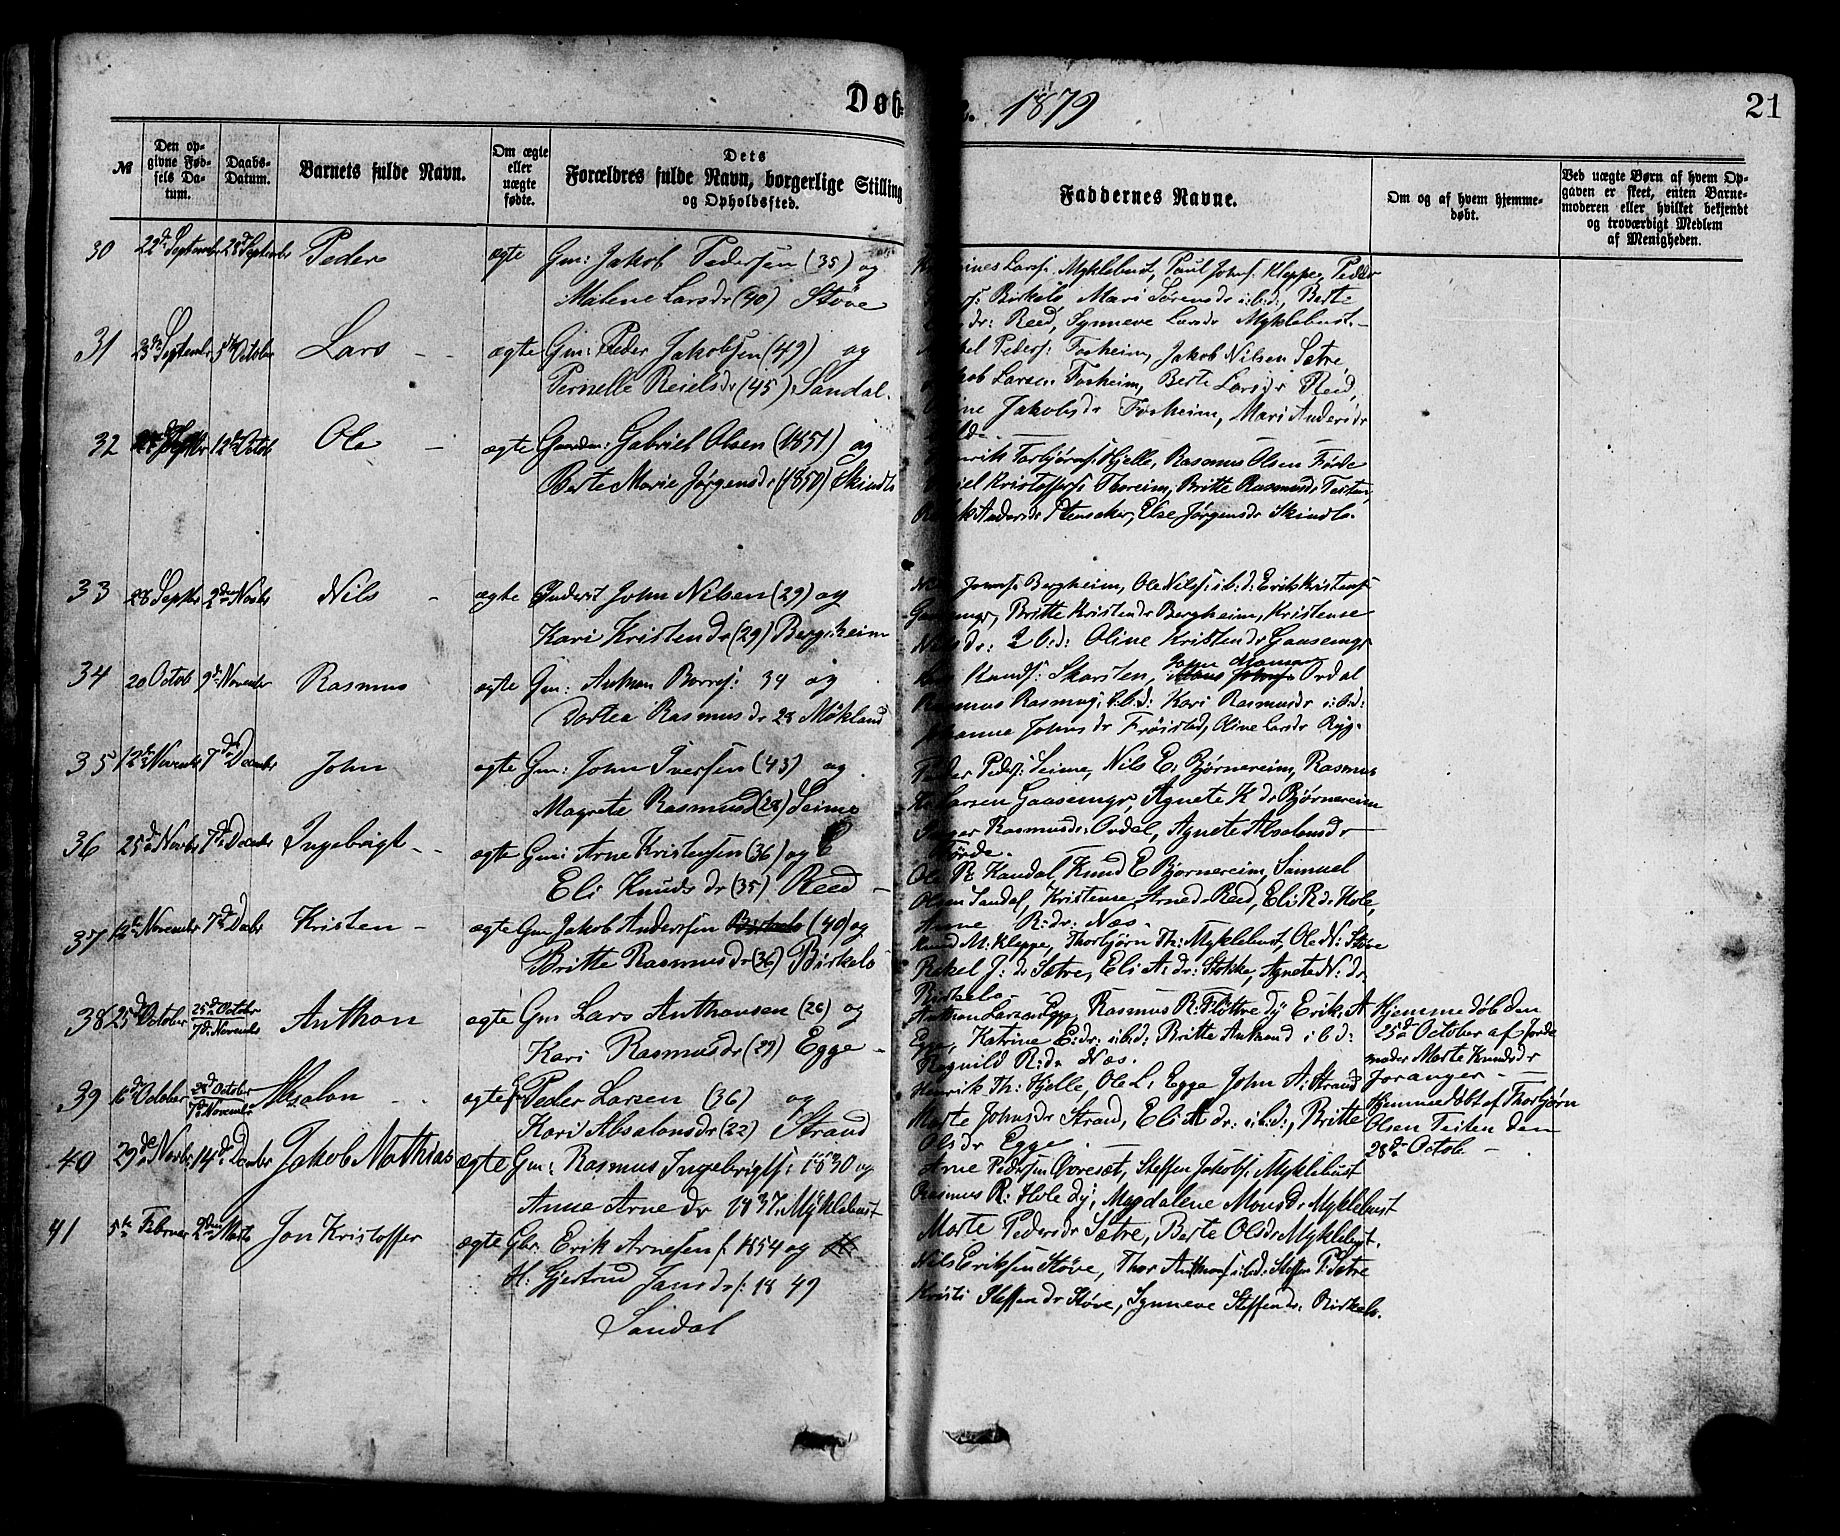 Døb
1879
21
№
Den op-
givne Fød-
sels Da-
tum.
Daabs-
Datum.
Barnets fulde Navn.
Om ægte
eller
uægte
fødte.
Dets
Forældres fulde Navn, borgerlige Stilling
og Opholdssted.
Faddernes Navne.
Om og af hvem hjemme-
døbt.
Ved uægte Børn af hvem Op-
gaven er skeet, enten Barne-
moderen eller hvilket bekjendt
og troværdigt Medlem
af Menigheden.
30 22de September 28d September Peder ægte Gm: Jakob Pedersen (35) og
Malene Larsdr (40) Støve
Larsf: Myklebust, Paul Johnsf: Kleppe, Peder
Birkelo Mari Sørensdr i:b:d:, Berte
Reed, Synneve Larsdr Myklebust.
31 23de September 5te October Lars - - ægte Gm: Peder Jakobsen (49) og
Pernelle Reielsdr (45) Sandal.
Pedersf: Forheim, Jakob Nilsen Sætre
Larsen Forheim, Berte Larsdr Reed,
Jakobsdr Forheim, Mari Andersdr
32 12te Octob Ole - ægte Gabriel Olsen (1851) og
Berte Marie Jørgensdr (1850) Skindlo
Torbjørnsf: Hjelle, Rasmus Olsen Førde
Kristoffersf: Thoreim, Britte Rasmusdr Teiten,
Andersdr Stensaker, Else Jørgensdr Skindlo.
33 28 Septbr 2den Novbr Nils - ægte John Nilsen (29) og
Kari Kristendr (29) Bergheim
Johnsf: Bergheim, Ole Nilsf: i:b:d: Erik Kristensf
Britte Kristendr Bergheim, Kristense
i:b:d: Oline Kristendr Gaasemyr
34 20 Octob 9de November Rasmus ægte Gm: Anthon Børresf: 34 og
Dortea Rasmusdr 28 Møkland
Knudsf: Skarsten, Ordal
Rasmus Rasmusf i:b:d: Kari Rasmusdr i:b:d:
Johnsdr Frøistad, Oline Larsdr Ryg.
35 12te November 7de December John ægte Gm: John Iversen (43) og
Magrete Rasmusd (28) Seime
Peder Pedsf: Seime, Nils E: Bjørnereim, Rasmus
Larsen Gaasemyr, Agnete K dr Bjørnereim
Rasmusdr: Ordal, Agnete Absalonsdr
Førde.
36 25de Novbr 7de Decbr Ingebrigt - - ægte Gm: Arne Kristensen (36) og
Eli Knudsdr (35) Reed -
Ole R: Kandal, Knud E Bjørnereim, Samuel
Olsen Sandal, Kristense Arned. Reed, Eli R:dr Hole,
Anne R:dr: Næs.
37 12te November 7de Decbr Kristen - ægte Gm Jakob Andersen Birkelo (40) og
Britte Rasmusdr (36) Birkelo
Knud M: Kleppe, Thorbjørn Th: Myklebust, Ole N: Støve
Rakel J: dr Sætre, Eli A: dr: Stokke, Agnete N: dr
Birkelo.
38 25de October 25de October
7de November Anthon ægte Gm Lars Anthonsen (26) og
Kari Rasmusdr (29) Egge -
Anthon Larsen Egge, Rasmus R: Flottre dy Erik A
Egge, Katrine E: dr: i:b:d: Britte Anthond i b d:
Ragnild R: dr Næs.
Hjemmedøb den
25de October af Jorde
moder Marte Knudsdr
Joranger -
39 16de October 28d October
7de November Absalon - - ægte Peder Larsen (36) og
Kari Absalonsdr (22) Strand
Henrik Th: Hjelle, Ole L: Egge John A: Strand
Marte Johnsdr Strand, Eli A dr: i:b:d:, Britte
Olsdr Egge.
Hjemmedøbt af Thorbjørn
Olsen Teiten den
28de Octob -
40 29de Novbr 14de Decbr Jakob Mathias ægte Gm: Rasmus Ingebrigtsf: 1830 og
Anne Arnedr 1837. Myklebust
Arne Pedersen Øvresæt, Steffen Jakobsf Myklebust
Rasmus R: Hole dy, Magdalene Monsdr Myklebust
Marte Pedersdr Sætre, Berte Olsdr Myklebst.
41 5te Februar 2den Marts Jon Kristoffer ægte Gbr. Erik Arnesen f: 1854 og
H: Gjertrud Jansdr f: 1849
Sandal
Nils Eriksen Støve, Thor Anthonsf i:b:d: Steffen P: Sætre
Kristi Steffendr Støve, Synneve Steffendr: Birkelo.